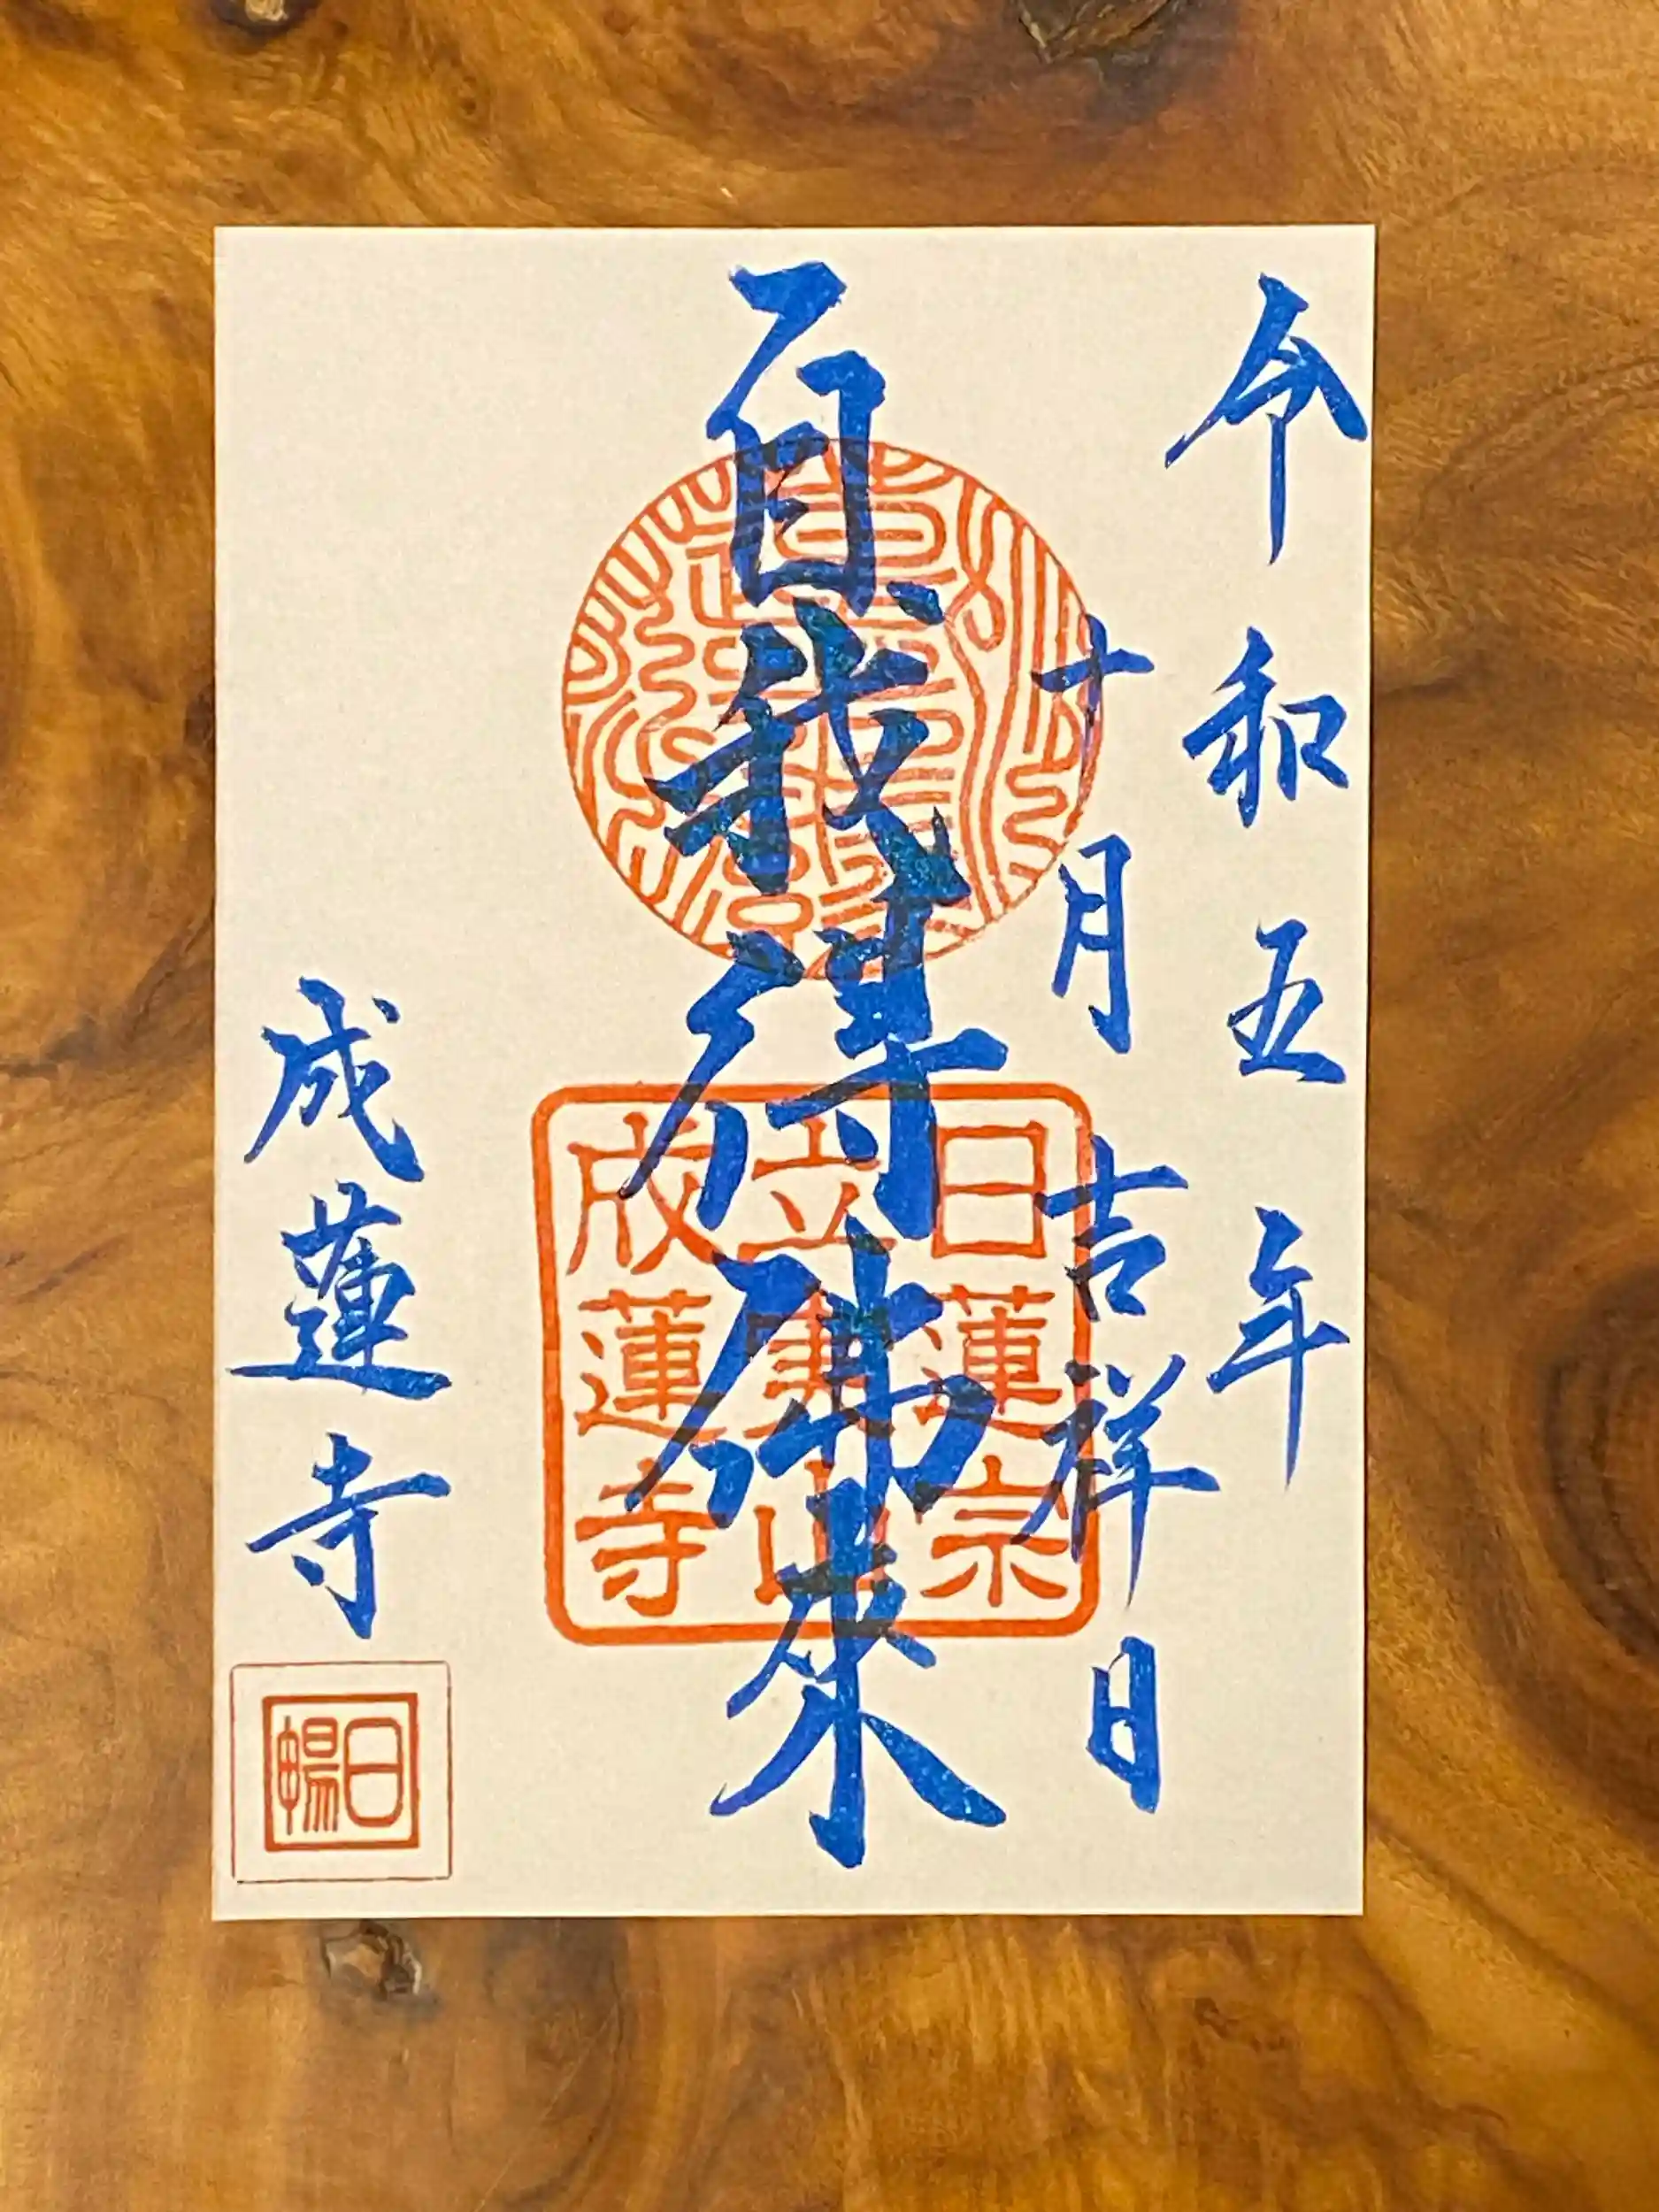 令和五年
十月吉祥日
自我得佛來
成蓮寺
日蓮宗
成蓮寺
日暢